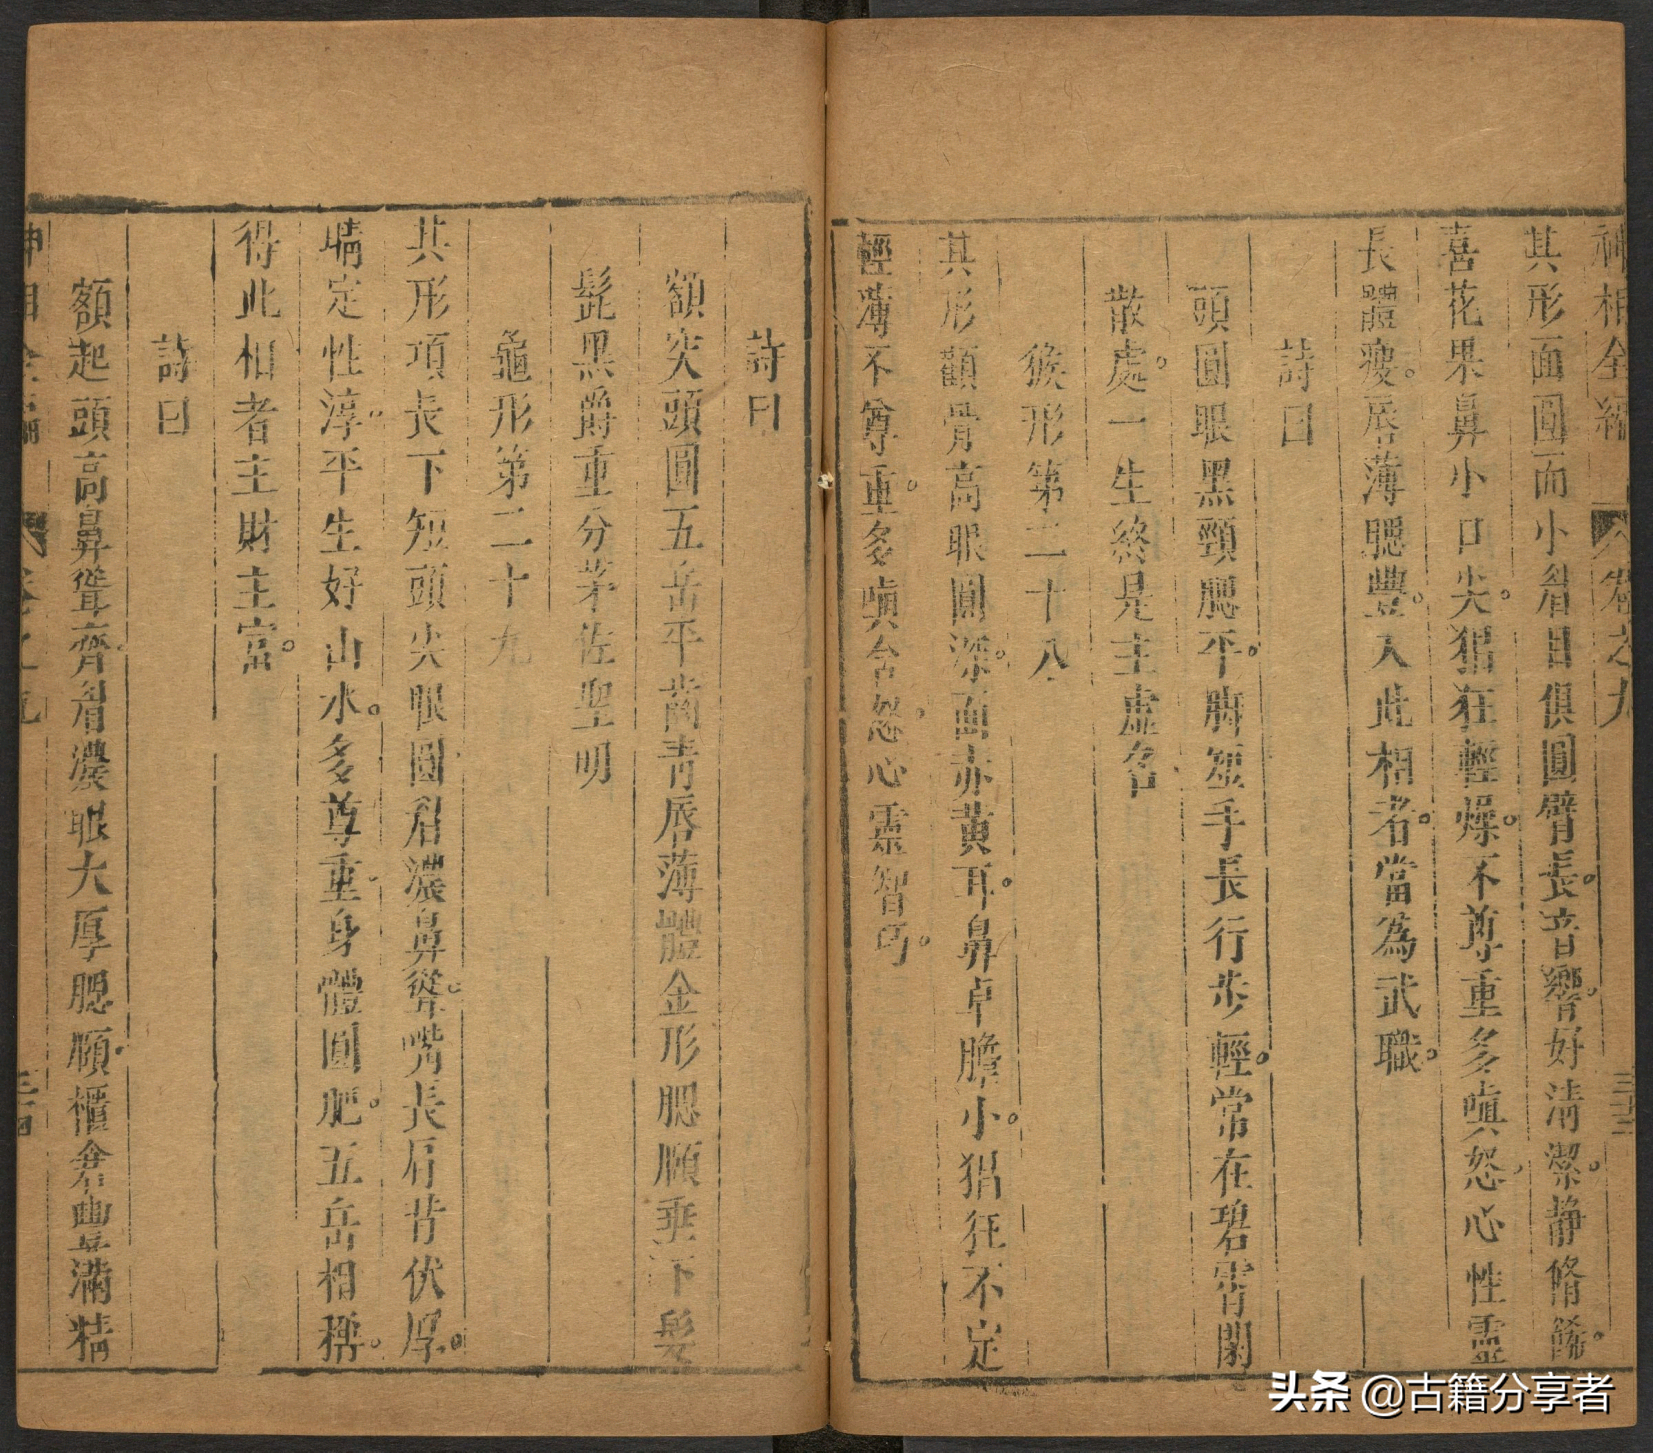 神相全編 卷之九 三十三
其形面圓而小眉目俱圓臂長音響好清潔静脩飾
喜花果鼻小口尖猖狂輕燥不尊重多嗔怒心性靈
長體瘦唇薄腮豐入此相者當為武職
詩曰
頭圓眼黑頸腮平脚短手長行步輕常在碧霄閑
散處一生終是主虛名
猴形第二十八
其形顴骨高眼圓深面赤黄耳鼻卓膽小猖狂不定
輕薄不尊重多嗔舍怒心靈智巧
詩曰
額突頭圓五岳平齒青唇薄體金形腮順垂下髮
髭黑爵重分茅佐聖明
龜形第二十九
其形項長下短頭尖眼圓眉濃鼻聳嘴長肩背伏厚
睛定性淳平生好山水多尊重身體圓肥五岳相稱
得此相者主財主富
詩曰
額起頭高鼻聳齊眉濃眼大厚腮順櫃倉豐滿精
神相全編 卷之九 三十四
頭条 @古籍分享者